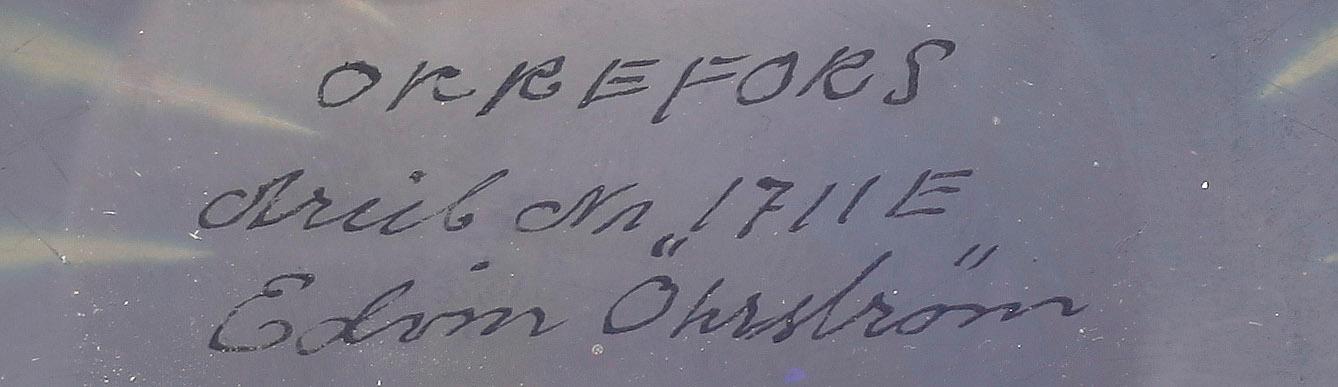 ORREFORS
Ariel Nr 1711 E
Edvin Öhrström